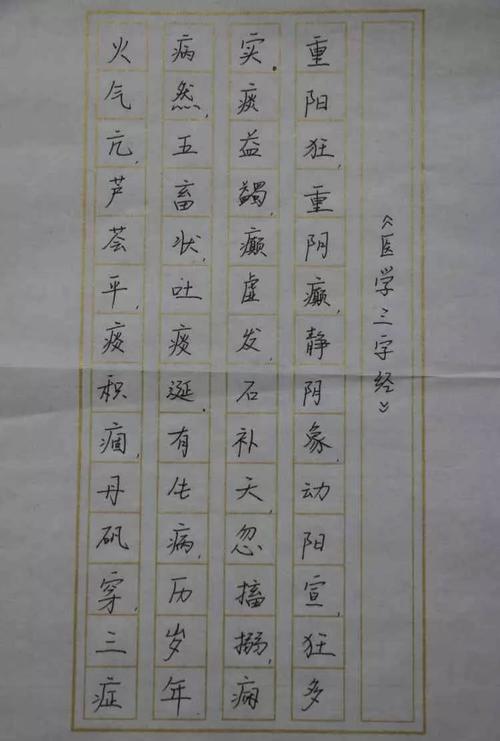 《医学三字经》
重阳狂,重阴癫,静阴象,动阳宣,狂多
实,痰益蠲,癫虚发,石补天,忽搐搦,痫
病然,五畜状,吐痰涎,有生病,历岁年
火气亢,芦荟平,痰积痼,丹矾穿,三症